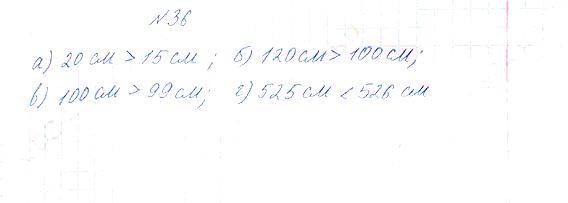 №36
а) 20 см > 15 см ; б) 120 см > 100 см;
в) 100 см > 99 см; г) 525 см < 526 см